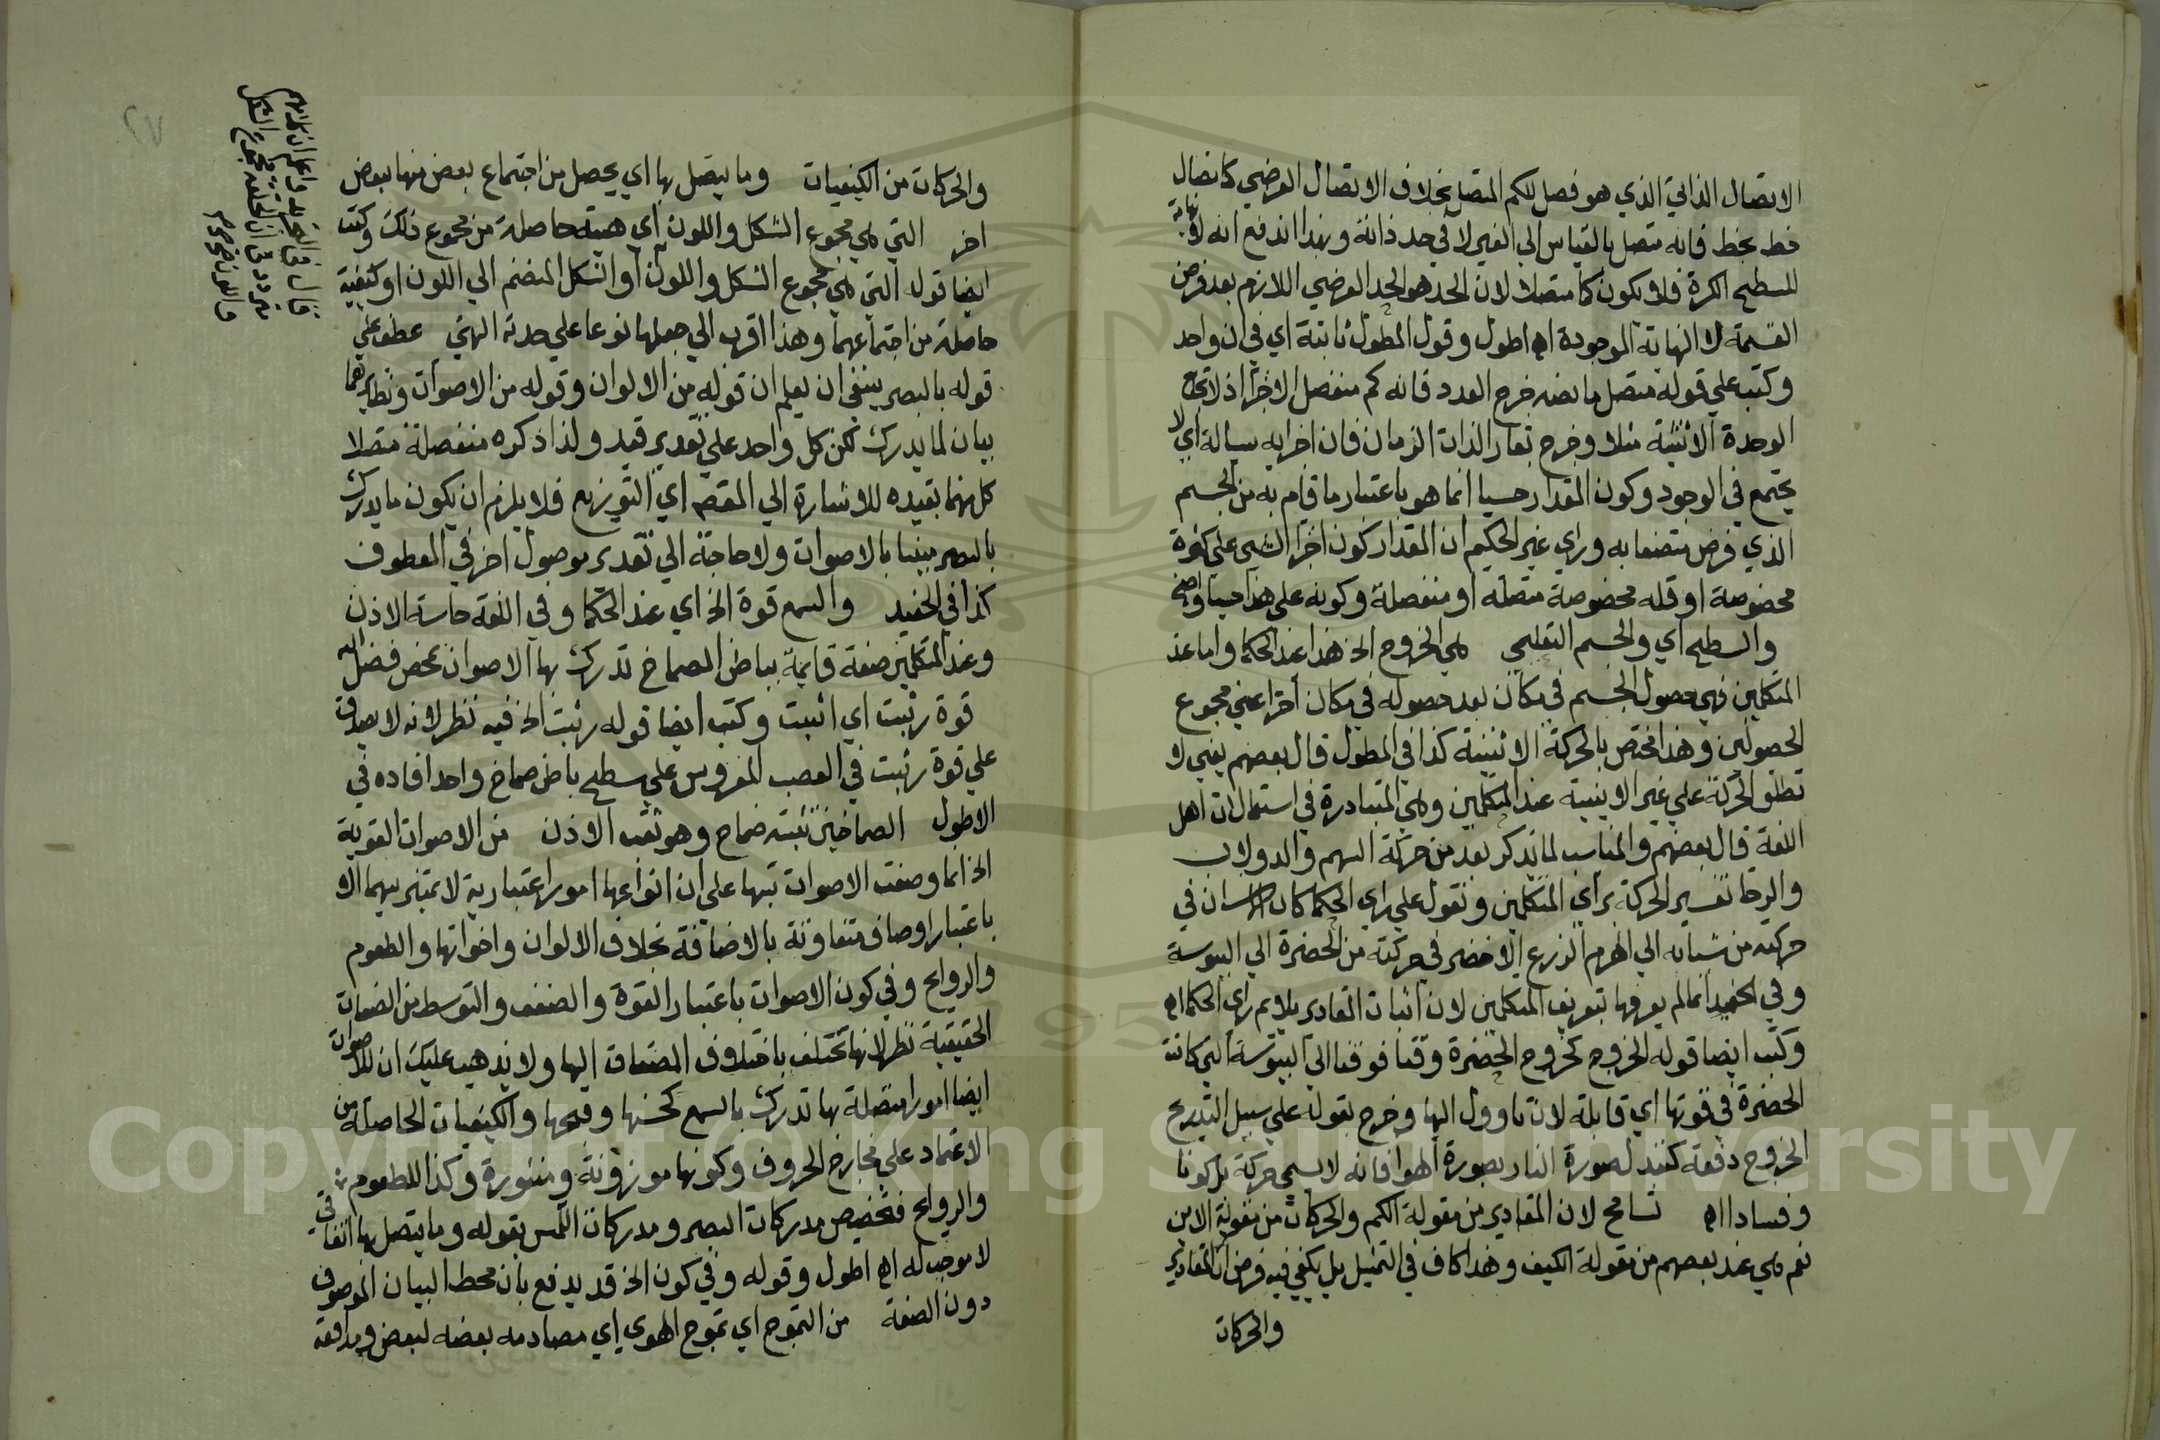 الاتصال الذاتي الذي هو فصل للكم المتصل بخلاف الاتصال العرضي كاتصال
خط بخط فانه متصل بالقياس الي الغير لا في حد ذاته وبهذا اندفع انه لا نهاية
للسطح الكرة فلا يكون كما متصلا لان الحد هو الحد العرضي اللازم بعد فرض
القسمة لا النهاية الموجودة اه اطول وقول المطول ثابتة اي في ان واحد
وكتب علي قوله متصل ما نصه خرج العدد فانه كم منفصل الاجزا اذ لا تجا
الوحدة الاثنينية مثلا وخرج بقار الذات الزمان فان اجزايه سيالة اي لا
يجتمع في الوجود وكون المقدار حسيا انما هو باعتبار ما قام به من الجسم
الذي فرض متصفا به وراي غير الحكيم ان المقدار كون اجزا الشي علي كثرة
مخصوصة او قلة مخصوصة متصلة او منفصلة وكونه علي هذا حسيا واضح
والسطح اي والجسم التعليمي هي الخروج الخ هذا عند الحكما واما عند
المتكلمين فهي حصول الجسم في مكان بعد حصوله في مكان اخر اعني مجموع
الحصولين وهذا مختص بالحركة الاينية كذا في المطول قال بعضهم يعني لا
تطلق الحركة علي غير الاينية عند المتكلمين وهي المتبادرة في استعمالات اهل
اللغة قال بعضهم والمناسب لما يذكر بعد من حركة السهم والدولاب
والرحا تفسير الحركة براي المتكلمين ونقول علي راي الحكما كان الانسان في
حركته من شبابه الي الهرم الزرع الاخضر في حركته من الخضرة الي اليبوسة
وفي الحفيد انما لم يعرفها بتعريف المتكلمين لان اثبات المقادير يلايم راي الحكما اه
وكتب ايضا قوله الخروج كخروج الخضرة وقتا فوقتا الي اليبوسة التي كانت
الخضرة في قوتها اي قابلة لان تاوول اليها وخرج بقوله علي سبيل التدريج
الخروج دفعة كتبدل صورة النار بصورة الهوا فانه لا يسمي حركة بل كونا
وفسادا اه تسامح لان المقادير من مقولة الكم والحركات من مقولة الاين
نعم هي عند بعضهم من مقولة الكيف وهذا كاف في التمثيل بل يكفي فيه فرض ان المقادير
والحركات
والحركات من الكيفيات وما يتصل بها اي يحصل من اجتماع بعض منها ببعض
اخر التي هي مجموع الشكل واللون اي هيئة حاصلة من مجموع ذلك وكتب
ايضا قوله التي هي مجموع الشكل واللون او الشكل المنضم الي اللون او كيفية
حاصلة من اجتماعهما وهذا اقرب الي جعلها نوعا علي حدته انتهي عطف علي
قوله بالبصر ينبغي ان يعلم ان قوله من الالوان وقوله من الاصوات ونظايرهما
بيان لما يدرك لكن كل واحد علي تقدير قيد ولذا ذكره منفصلة متصلا
كل منهما بقيده للاشارة الي المقصد اي التوزيع فلا يلزم ان يكون ما يدرك
بالبصر مبينا بالاصوات ولا حاجة الي تقدير موصول اخر في المعطوف
كذا في الحفيد والسمع قوة الخ اي عند الحكما وفي اللغة حاسة الاذن
وعند المتكلمين صفة قايمة بباطن الصماخ تدرك بها الاصوات بمحض فضل الله
قوة رتبت اي اثبتت وكتب ايضا قوله رتبت الخ فيه نظر لانه لا يصدق
علي قوة رتبت في العصب المفروش علي سطح باطن صماخ واحد افاده في
الاطول الصماخين تثنية صماخ وهو ثقب الاذن من الاصوات القوية
الخ انما وصفت الاصوات تنبيها علي ان انواعها امور اعتبارية لا تمتيز بينهما الا
باعتبار اوصاف متفاوتة بالاضافة بخلاف الالوان واخواتها والطعوم
والروايح وفي كون الاصوات باعتبار القوة والضعف والتوسط من الصفات
الحقيقية نظر لانها تختلف باختلاف المضاف اليها ولا يذهب عليك ان للاصوات
ايضا امورا متصلة بها تدرك بالسمع كحسنها وقبحها والكيفيات الحاصلة من
الاعتماد علي مخارج الحروف وكونها موزونة ومنثورة وكذا للطعوم
والروايح فتخصيص مدركات البصر ومدركات اللمس بقوله وما يتصل بها اتفاقي
لا موجب له اه اطول وقوله وفي كون الخ قد يدفع بان محط البيان الموصوف
دون الصفة من التموج اي تموج الهوي اي مصادمه بعضه لبعض ومدافعة